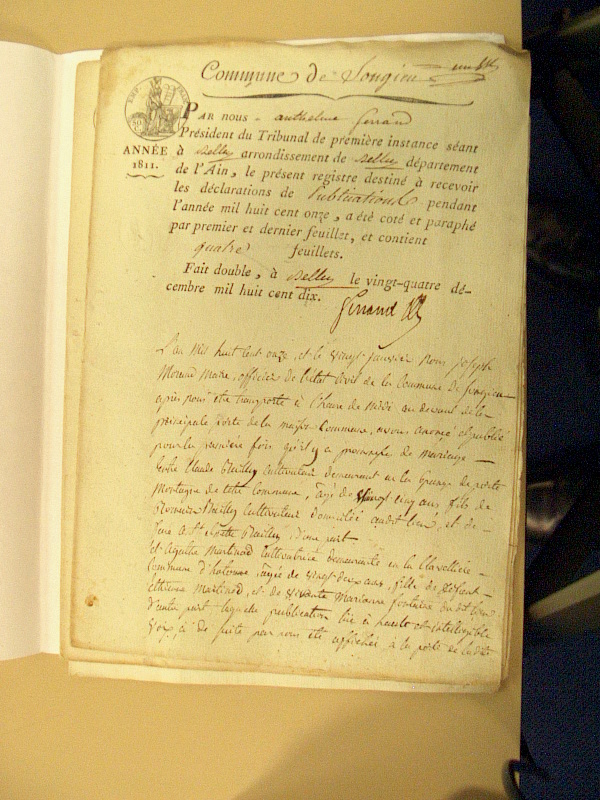 Commune de Songieu
PAR nous anthelme Gerrand
Président du Tribunal de première instance séant
ANNÉE 1811.
à Belley arrondissement de Belley département
de l'Ain, le présent registre destiné à recevoir
les déclarations de Publications pendant
l'année mil huit cent onze, a été coté et paraphé
par premier et dernier feuillet, et contient
quatre feuillets.
Fait double, à Belley le vingt-quatre dé-
cembre mil huit cent dix.
L'an mil huit cent onze, et le vingt janvier nous joseph
maire, officier de l'état civil de la Commune de Songieu
après nous être transporté à l'heure de midi au devant de la
principale porte de la maison Commune, avons anoncé et publié
pour la première fois qu'il y a promesse de mariage
Entre Claude Bailly Cultivateur demeurant en la Grange de
montagne de cette Commune, agé de vingt cinq ans, fils de
Bailly Cultivateur domicilié audit lieu, et de
Bailly d'une part
Et Martinod Cultivatrice demeurante en la
Commune d'hotonne agée de vingt deux ans, fille de défunt
Martinod, et de vivante Marianne fontaine dudit lieu
d'autre part laquelle publication lue à haute et intelligible
voix, a de suite par nous été affichée, à la porte de ladite